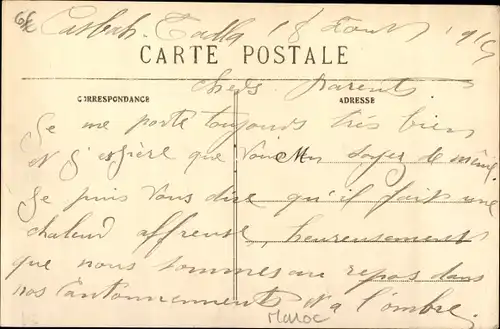 Casbah-Tadla 18 Aout 1915
CARTE POSTALE
chers parents
CORRESPONDANCE
ADRESSE
Je me porte toujours très bien
et j'espère que vous soyez de même
Je puis vous dire qu'il fait une
chaleur affreuse, heureusement
que nous sommes au repos dans
nos Cantonnements et a l'ombre.
Maroc